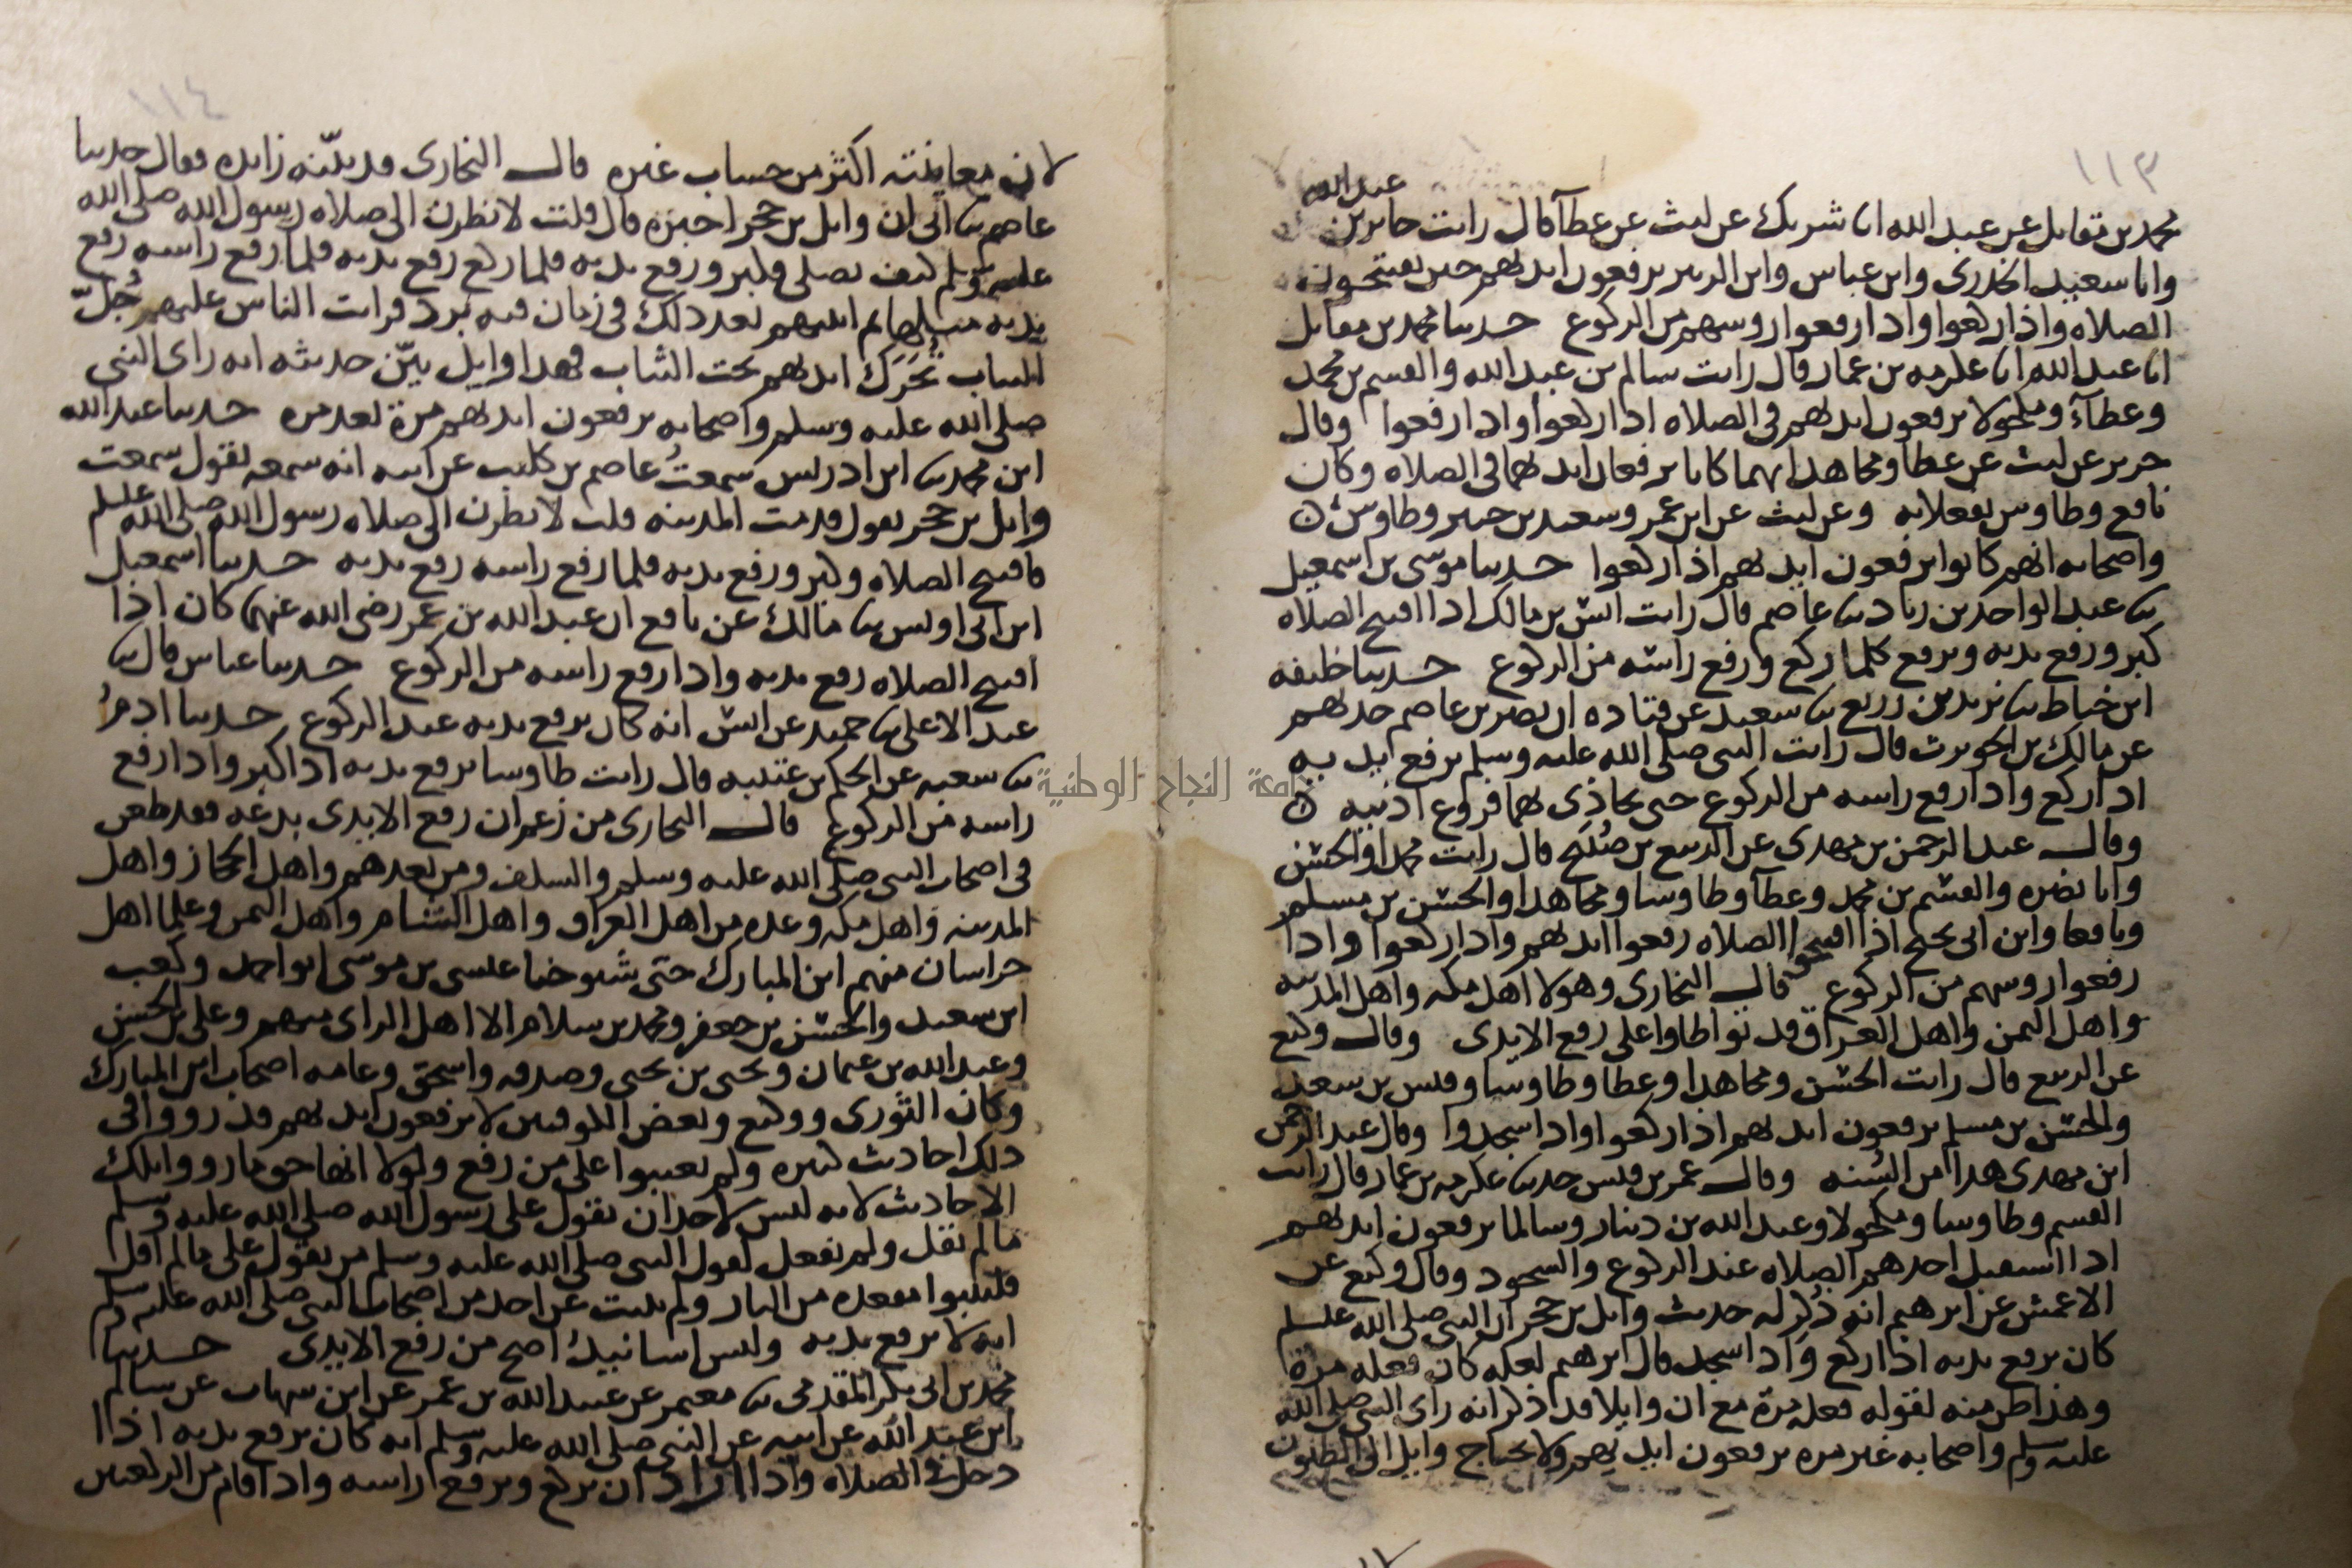 ١١٣
عبد الله
محمد بن مقاتل عن عبد الله انا شريك عن ليث عن عطآ قال رايت جابر بن
وابا سعيد الخدرى وابن عباس وابن الزبير يرفعون ايديهم حين يفتتحون
الصلاه واذا ركعوا واذا رفعوا روسهم من الركوع حدثنا محمد بن مقاتل
انا عبد الله انا عكرمه بن عمار قال رايت سالم بن عبد الله والقسم بن محمد
وعطآء ومكحولا يرفعون ايديهم فى الصلاه اذا ركعوا واذا رفعوا وقال
جرير عن ليث عن عطا ومجاهد انهما كانا يرفعان ايديهما فى الصلاه وكان
نافع وطاوس يفعلانه وعن ليث عن ابن عمر وسعيد بن جبير وطاوس
واصحابه انهم كانوا يرفعون ايديهم اذا ركعوا حدثنا موسى بن اسمعيل
ثنا عبد الواحد بن زياد ثنا عاصم قال رايت انس بن مالك اذا افتتح الصلاه
كبر ورفع يديه ويرفع كلما ركع ورفع راسه من الركوع حدثنا خليفه
ابن خياط ثنا يزيد بن زريع ثنا سعيد عن قتاده ان نصر بن عاصم حدثهم
عن مالك بن الحويرث قال رايت النبى صلى الله عليه وسلم يرفع يديه
اذا ركع واذا رفع راسه من الركوع حتى يحاذى بهما فروع اذنيه
وقال عبد الرحمن بن مهدى عن الربيع بن صبيح قال رايت محمدا والحسن
وابا نضره والقسم بن محمد وعطآ وطاوسا ومجاهدا والحسن بن مسلم
ونافعا وابن ابى نجيح اذا افتتحوا الصلاه رفعوا ايديهم واذا ركعوا واذا
رفعوا روسهم من الركوع قال البخارى وهولا اهل مكه واهل المدينه
واهل اليمن واهل العراق قد تواطاوا على رفع الايدى وقال وكيع
عن الربيع قال رايت الحسن ومجاهدا وعطا وطاوسا وقيس بن سعد
والحسن بن مسلم يرفعون ايديهم اذا ركعوا واذا سجدوا وقال عبد الرحمن
ابن مهدى هذا من السنه وقال عمر بن يونس حدثنا عكرمه بن عمار قال رايت
القسم وطاوسا ومكحولا وعبد الله بن دينار وسالما يرفعون ايديهم
اذا استقبل احدهم الصلاه عند الركوع والسجود وقال وكيع عن
الاعمش عن ابرهيم انه ذكر له حديث وايل بن حجر ان النبى صلى الله عليه وسلم
كان يرفع يديه اذا ركع واذا سجد قال ابرهيم لعله كان فعله مرة
وهذا ظن منه لقوله فعله مرة مع ان وايلا قد اذكر انه راى النبى صلى الله
عليه وسلم واصحابه غير مره يرفعون ايديهم ولا يحتاج وايل الى الظنون
١١٤
لان معاينته اكثر من حساب غيره قال البخارى قد بيّنه زايده فقال حدثنا
عاصم ثنا ابى ان وايل بن حجر اخبره قال قلت لانظرن الى صلاه رسول الله صلى الله
عليه وسلم كيف يصلى فكبر ورفع يديه فلما ركع رفع يديه فلما رفع راسه رفع
يديه بمثلها ثم اتيتهم بعد ذلك فى زمان فيه برد فرايت الناس عليهم جُلّ
الثياب تحرك ايديهم تحت الثياب فهذا وايل بيّن حديثه انه راى النبى
صلى الله عليه وسلم واصحابه يرفعون ايديهم مرة بعد مره حدثنا عبد الله
ابن محمد ثنا ابن ادريس سمعت عاصم بن كليب عن ابيه انه سمعه يقول سمعت
وايل بن حجر يقول قدمت المدينه قلت لانظرن الى صلاه رسول الله صلى الله عليه وسلم
فافتتح الصلاه وكبر ورفع يديه فلما رفع راسه رفع يديه حدثنا اسمعيل
ابن ابى اويس ثنا مالك عن نافع ان عبد الله بن عمر رضى الله عنهما كان اذا
افتتح الصلاه رفع يديه واذا رفع راسه من الركوع حدثنا عياش قال ثنا
عبد الاعلى ثنا حميد عن انس انه كان يرفع يديه عند الركوع حدثنا ادم
ثنا شعبه عن الحكم بن عتيبه قال رايت طاوسا يرفع يديه اذا كبر واذا رفع
راسه من الركوع قال البخارى من زعم ان رفع الايدى بدعه فقد طعن
فى اصحاب النبى صلى الله عليه وسلم والسلف ومن بعدهم واهل الحجاز واهل
المدينه واهل مكه وعده من اهل العراق واهل الشام واهل اليمن وعلما اهل
خراسان منهم ابن المبارك حتى شيوخنا عيسى بن موسى ابو احمد وكعب
ابن سعيد والحسن بن جعفر ومحمد بن سلام الا اهل الراى منهم وعلى بن الحسن
وعبد الله بن عثمان ويحيى بن يحيى وصدقه واسحق وعامه اصحاب ابن المبارك
وكان الثورى ووكيع وبعض الكوفيين لا يرفعون ايديهم قد رووا فى
ذلك احاديث كثيره ولم يعيبوا على من رفع ولولا انها حق ما رووا تلك
الاحاديث لانه ليس لاحد ان يقول على رسول الله صلى الله عليه وسلم
مالم يقل ولم يفعل لقول النبى صلى الله عليه وسلم من يقول على مالم اقل
فليتبوا مقعده من النار ولم يثبت عن احد من اصحاب النبى صلى الله عليه وسلم
انه لا يرفع يديه وليس اسانيده اصح من رفع الايدى حدثنا
محمد بن ابى بكر المقدمى ثنا معتمر عن عبيد الله بن عمر عن ابن شهاب عن سالم
ابن عبد الله عن ابيه عن النبى صلى الله عليه وسلم انه كان يرفع يديه اذا
دخل فى الصلاه واذا اراد ان يركع ويرفع راسه واذا قام من الركعتين
جامعة النجاح الوطنية